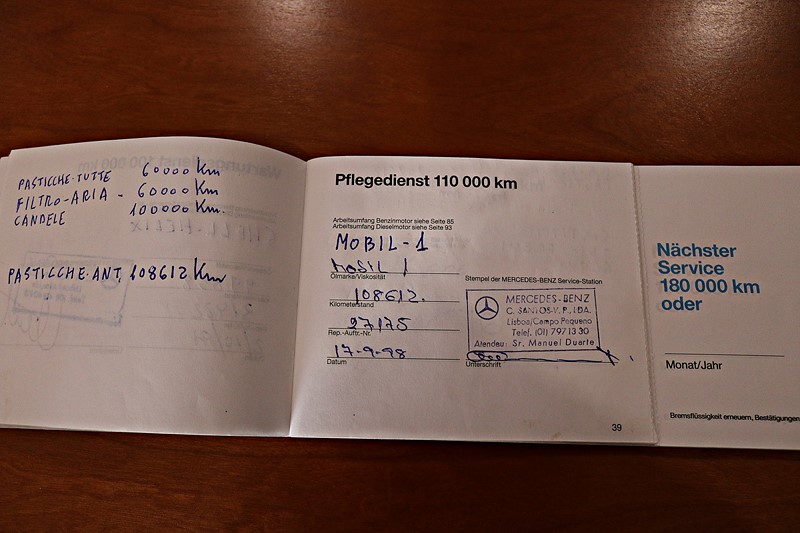 PASTICCHE-TUTTE 60000 Km
FILTRO-ARIA - 60000 Km
CANDELE 100000 Km.
PASTICCHE.ANT. 108612 Km
Pflegedienst 110 000 km
Arbeitsumfang Benzinmotor siehe Seite 85
Arbeitsumfang Dieselmotor siehe Seite 93
MOBIL-1
Mobil 1
Ölmarke/Viskosität
108612.
Kilometerstand
27175
Rep.-Auftr.-Nr.
17-9-98
Datum
Stempel der MERCEDES-BENZ Service-Station
MERCEDES-BENZ
C. SANTOS-V.P., LDA.
Lisboa/Campo Pequeno
Telef. (01) 797 13 30
Atendeu: Sr. Manuel Duarte
Unterschrift
39
Nächster
Service
180 000 km
oder
Monat/Jahr
Bremsflüssigkeit erneuern, Bestätigungen